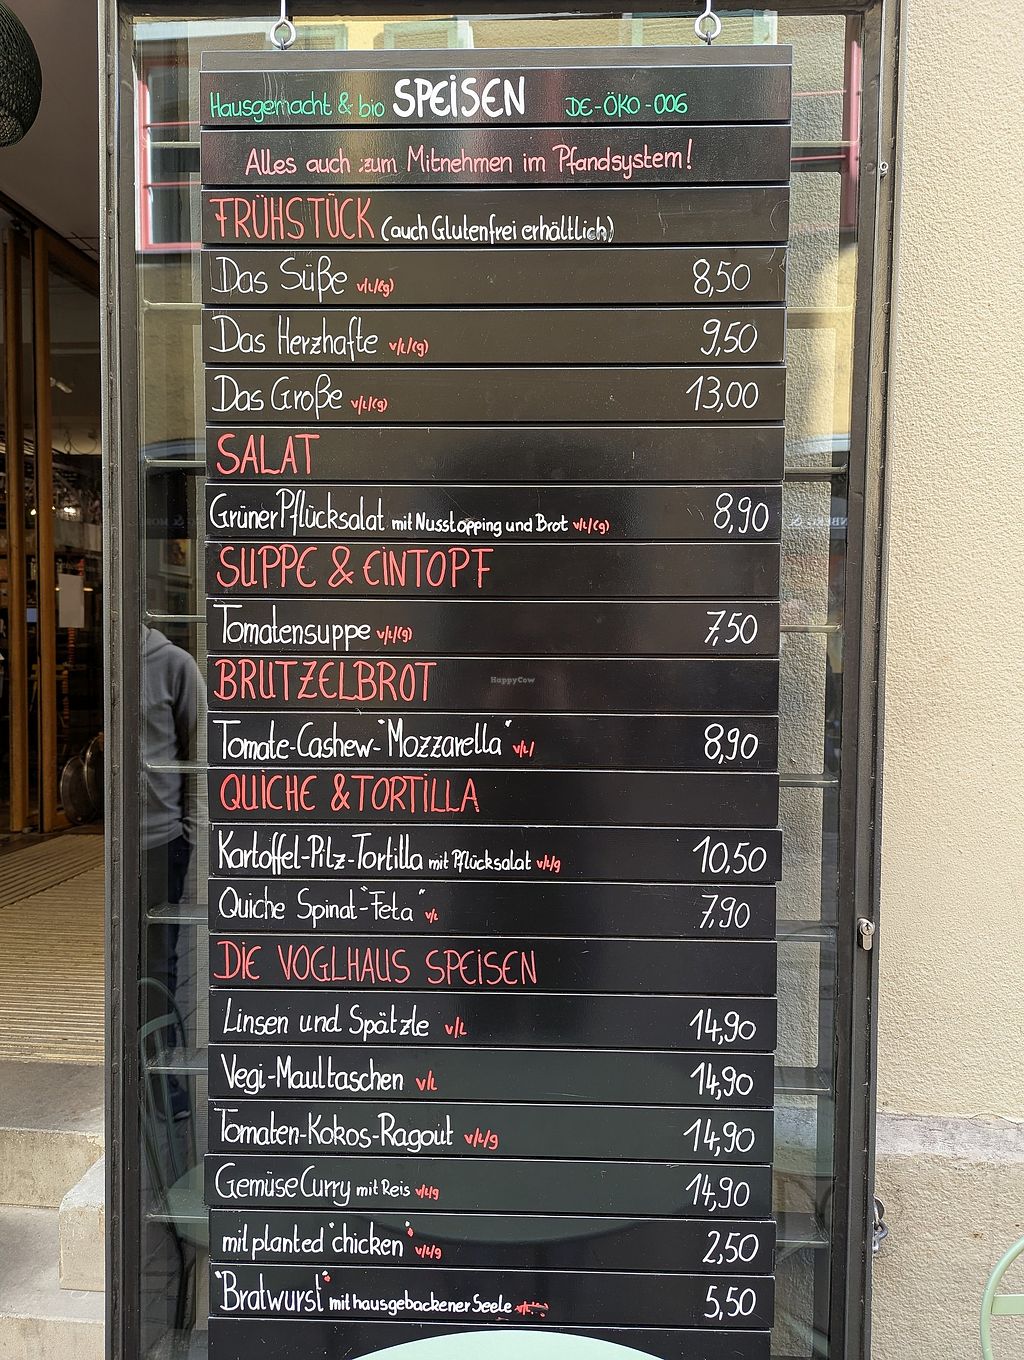 Hausgemacht & bio SPEISEN DE-ÖKO-006
Alles auch zum Mitnehmen im Pfandsystem!
FRÜHSTÜCK (auch Glutenfrei erhältlich)
Das Süße v/L/(g) 8,50
Das Herzhafte v/L/(g) 9,50
Das Große v/L/(g) 13,00
SALAT
Grüner Pflücksalat mit Nusstopping und Brot v/L/(g) 8,90
SUPPE & EINTOPF
Tomatensuppe v/L/(g) 7,50
BRUTZELBROT
HappyCow
Tomate-Cashew-"Mozzarella" v/L/ 8,90
QUICHE & TORTILLA
Kartoffel-Pilz-Tortilla mit Pflücksalat v/L/g 10,50
Quiche Spinat-"Feta" v/L 7,90
DIE VOGLHAUS SPEISEN
Linsen und Spätzle v/L 14,90
Vegi-Maultaschen v/L 14,90
Tomaten-Kokos-Ragout v/L/g 14,90
Gemüse Curry mit Reis v/L/g 14,90
mit planted "chicken" v/L/g 2,50
"Bratwurst" mit hausgebackener Seele 5,50